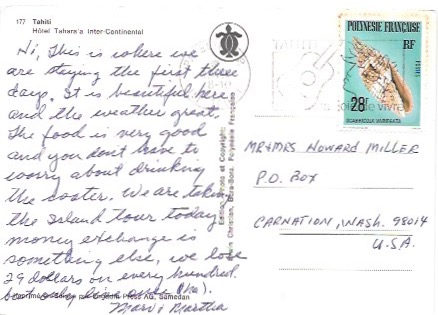 177 Tahiti
Hôtel Tahara'a Inter-Continental
Hi, This is where we
are staying the first three
days. It is beautiful here
and the weather great.
The food is very good
and you don't have to
worry about drinking
the water. We are taking
the Island tour today
money exchange is
something else, we lose
29 dollars on every hundred.
but only live once (ha).
Marv & Martha
POLYNESIE FRANÇAISE
RF
POSTES
28F
TAHITI
joie de vivre
Christian, Bora-Bora, Polynésie Française
MR & MRS HOWARD MILLER
P.O. BOX
CARNATION, WASH. 98014
U.S.A.
Press AG, Samedan